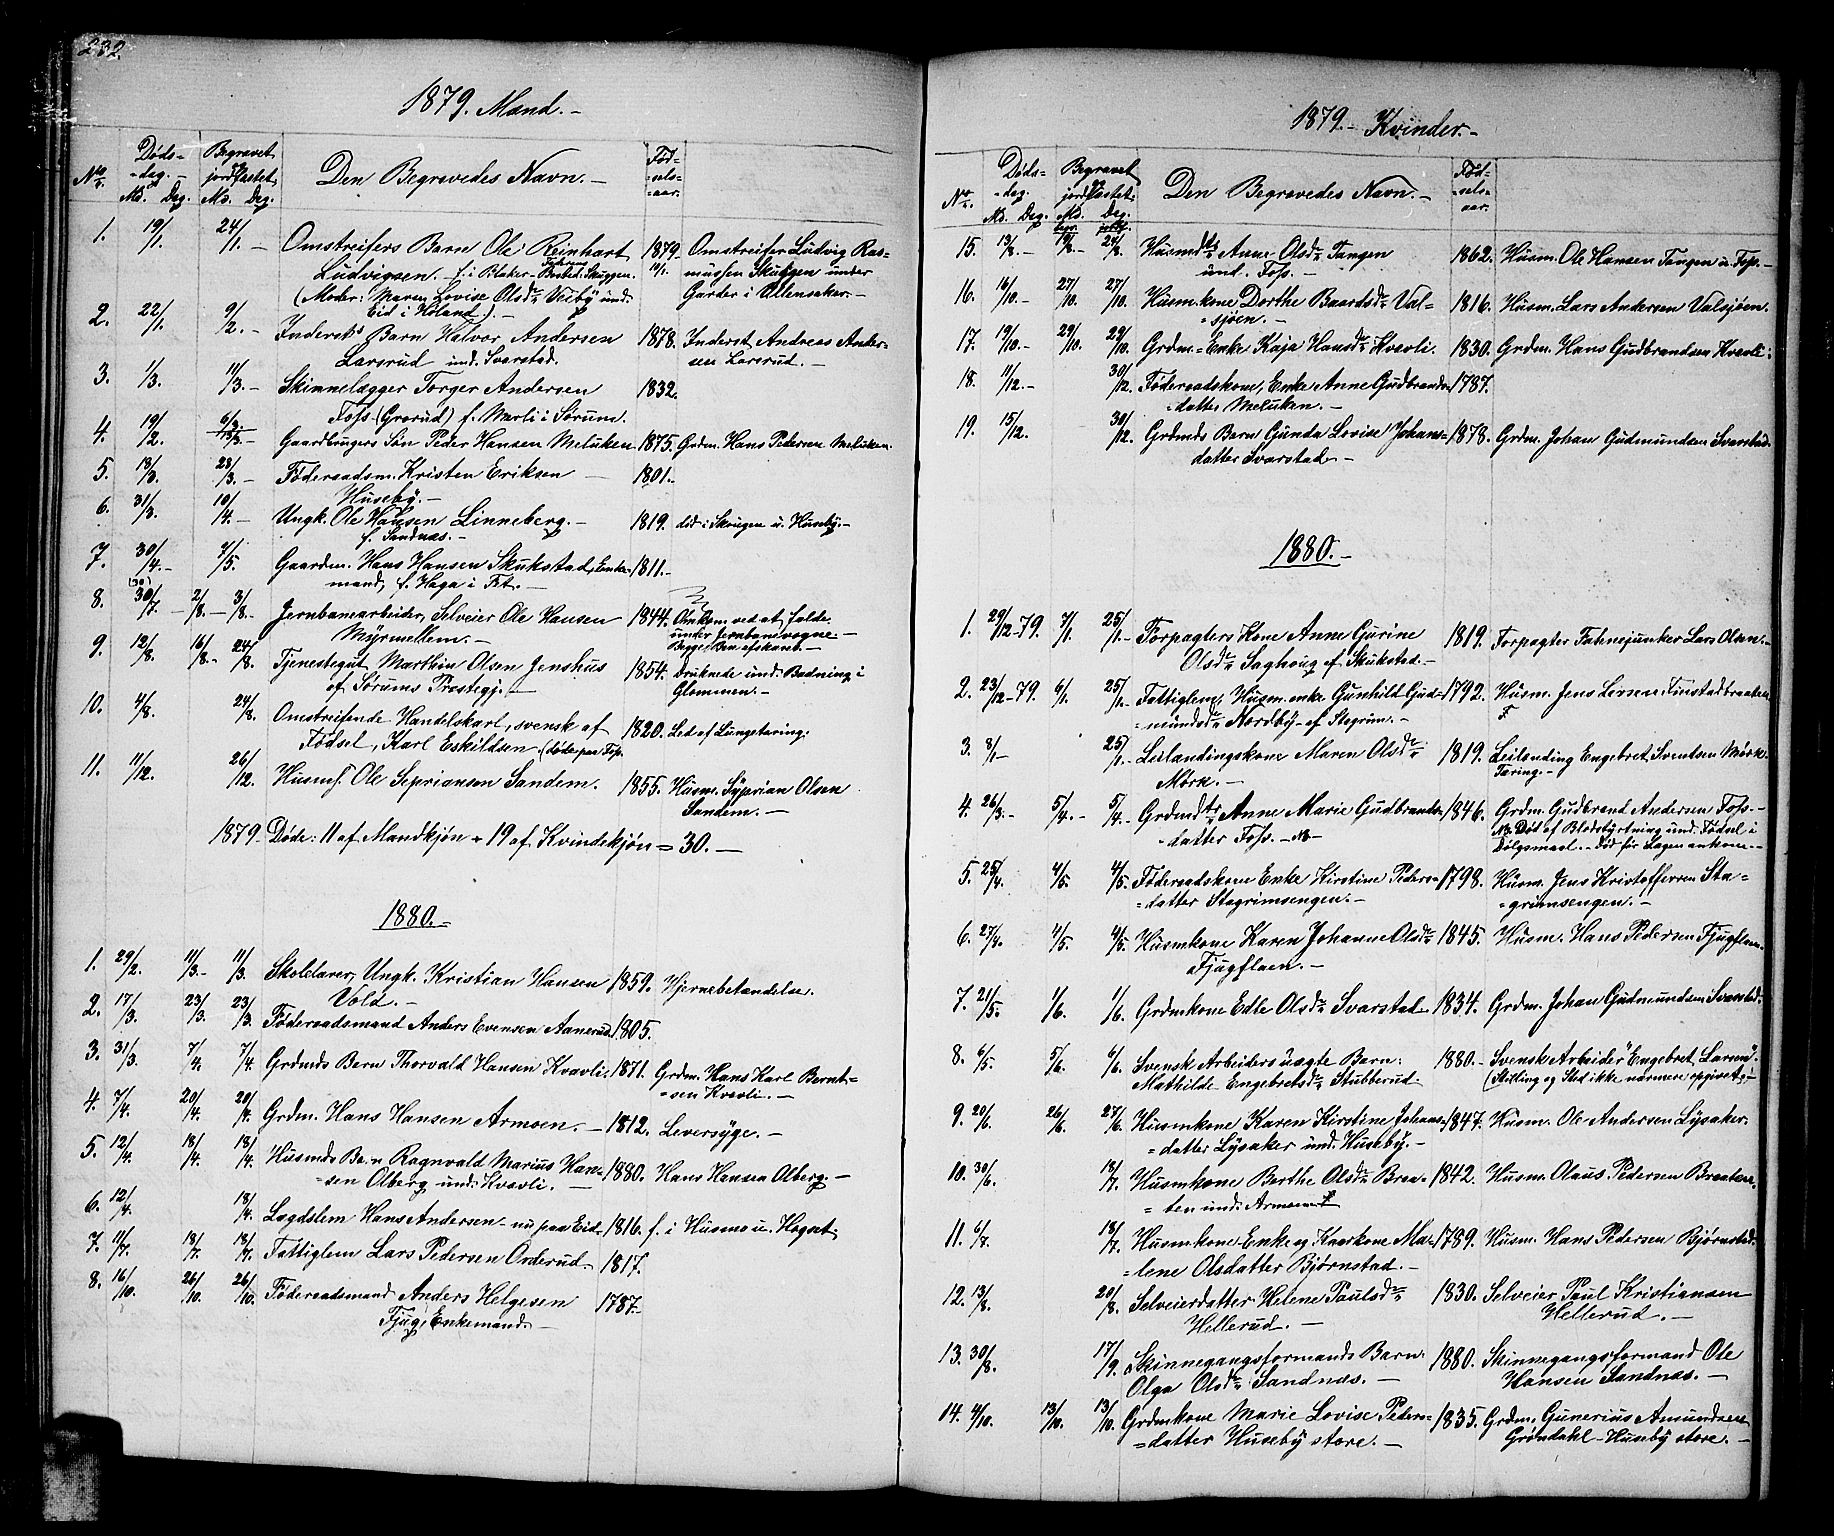 232.
1879. Mænd. —
No. Døds-dag. Md. Dag. Begravet og jordfæstet. Md. Dag. Den Begravedes Navn. — Fødselsaar.
1. 19/1. 24/1. — Omstreifers Barn Ole Reinhart 1879. 11/1. Omstreifer Ludvig Ras=
Ludvigsen. — f. i Blaker — mussen Skuggen under
(Moder: Maren Lovise Olsdr Veiby und. Garder i Ullensaker. —
Eid i Høland.) —
2. 22/1. 9/2. — Indersts Barn Halvor Andersen 1878. Inderst Andreas Ander=
Larsrud und. Svarstad. sen Larsrud. —
3. 1/3. 11/3. — Skindlægger Torger Andersen 1832.
Foss (Grorud) f. Merli i Sørum.
4. 19/2. 6/3. Gaardbrugers Søn Peder Hansen Meluken 1875. Grdm. Hans Pedersen Meluken.
5. 13/3. 23/3. — Føderaadsm. Kristen Eriksen — 1801. —
Huseby. —
6. 31/3. 10/4. — Ungk. Ole Hansen Linneberg. — 1819. død i Skougen u. Huseby. —
f. Sandnæs. —
7. 30/4. — 7/5. Gaardm. Hans Hansen Skukstad, Enke= 1811. —
mand, f. Haga i Fet. —
8. (30) 30/7. — 2/8. — 3/8. — Jernbanearbeider, Selveier Ole Hansen 1844. Omkom ved at falde
Myrmellem. — under Jernbanevogne —
Begge Ben afskaaret. —
9. 12/8. 16/8. — 24/8. Tjenestegut Marthin Olsen Jenshus 1854. Druknede und. Badning i
af Sørums Præstegj. — Glommen. —
10. 4/8. 24/8. Omstreifende Handelskarl, svensk af 1820. Led af Lungetæring.
Fødsel, Karl Eskildsen (døde paa Foss.
11. 11/12. 26/12. Husmf. Ole Sepriansen Sandem. 1855. Husm. Syprian Olsen
Sandem. —
1879. Døde: 11 af Mandkjøn + 19 af Kvindekjøn = 30. —
1880. —
1. 29/2. 11/3. — 11/3. Skolelærer, Ungk. Kristian Hansen 1859. Hjernebetændelse.
Vold. —
2. 17/3. 23/3. 23/3. Føderaadsmand Anders Evensen Aanerud 1805.
3. 31/3. 7/4. 7/4. Grdmds Barn Thorvald Hansen Kvevli. 1871. Grdm. Hans Karl Bernt=
sen Kvevli. —
4. 7/4. 20/4. 20/4. Grdm. Hans Hansen Armoen. — 1812. Leversyge. —
5. 12/4. 18/4. 18/4. Husmds Barn Ragnvald Marius Han= 1880. Hans Hansen Olberg. —
=sen Olberg und. Kvevli. —
6. 12/4. 18/4. Lægdslem Hans Andersen — nu paa Eid. 1816. f. i Husmo u. Hogset.
7. 11/7. 18/7. 18/7. Fattiglem Lars Pedersen Orderud. — 1817.
8. 16/10. 26/10. 26/10. Føderaadsmand Anders Helgesen 1787. —
Fjug, Enkemand. —
1879. — Kvinder. —
No. Døds-dag. Md. Dag. Begravet og jordfæstet. Md. Dag. Den Begravedes Navn. — Fødselsaar.
15. 13/8. — 19/8. — 24/8. Husmdtr Anne Olsdr Tangen 1862. Husm. Ole Hansen Tangen u. Foss. —
und. Foss. —
16. 16/10. — 27/10. 27/10. Husm.kone Dorthe Baardsdr Val= 1816. Husm. Lars Andersen Valsjøen.
=sjøen. —
17. 19/10. — 29/10. 29/10. Grdm. = Enke Kaja Hansdr Kvevli. 1830. Grdm. Hans Gudbrandsen Kvevli.
18. 11/12. — 30/12. Føderaadskone, Enke Anne Gudbrands= 1787.
=datter Meluken. —
19. 15/12. 30/12. Grdmds Barn Gunda Lovise Johans= 1878. Grdm. Johan Gudmundsen Svarstad.
datter Svarstad —
1880. —
1. 29/12-79. 7/1. 25/1. — Forpagters Kone Anne Gurine 1819. Forpagter Fahnejunker Lars Olsen. —
Olsdr Saghoug af Skukstad. —
2. 23/12-79. 6/1. 25/1. — Fattiglem, Husm.enke Gunhild Gud= 1792. Husm. Jens Larsen Finstadbraaten
=mundsdr Nordby — af Stagrim. —
3. 8/1 — 25/1. — Leilændingskone Maren Olsdr 1819. Leilænding Engebret Svendsen Mørk.
Mørk. — Tæring. —
4. 26/3. — 5/4. — 5/4. — Grdmdtr Anne Marie Gudbrands= 1846. Grdm. Gudbrand Andersen Foss. —
=datter Foss. — NB — NB Død af Blodstyrtning und. Fødsel i
Dølgsmaal. — Død før Lægen ankom —
5. 25/4. 4/5. 4/5. Føderaadskone Enke Kirstine Peders= 1798. Husm. Jens Kristoffersen Sta=
=datter Stagrimsengen. — =grimsengen. —
6. 27/4. 4/5. 4/5. Husmkone Karen Johanne Olsdr 1845. Husm. Hans Pedersen Fjugflaen.
Fjugflaen. —
7. 21/5. 1/6. 1/6. Grdmkone Edle Olsdr Svarstad — 1834. Grdm. Johan Gudmundsen Svarstad.
8. 6/5. 5/6. 6/6. Svensk Arbeiders uægte Barn: 1880. — Svensk Arbeider "Engebret Larsen".
Mathilde Engebretsdr Stubberud. (Stilling og Sted ikke nærmere opgivet.) —
9. 20/6. 26/6. 27/6. Husmkone Karen Kirstine Johans= 1847. Husm. Ole Andersen Lysaker.
=datter Lysaker und. Huseby. —
10. 30/6. 18/7. Husmkone Berthe Olsdr Braa= 1842. Husm. Olaus Pedersen Braaten.
=ten und. Armoen
11. 6/7. 18/7. Husmkone Enke og Kaarkone Ma= 1789. Husm. Hans Pedersen Bjørnstad.
=lene Olsdatter Bjørnstad. —
12. 13/8. 20/8. Selveierdatter Helene Paulsdr 1830. Selveier Paul Kristiansen
Hellerud. — Hellerud. —
13. 30/8. 17/9. Skinnegangsformands Barn: 1880. Skinnegangsformand Ole
Olga Olsdr Sandnæs. — Hansen Sandnæs. —
14. 4/10. 13/10. 13/10. Grdmkone Marie Lovise Peders= 1835. Grdm. Gunerius Amundsen
=datter Huseby store. — Grøndahl — Huseby store. —